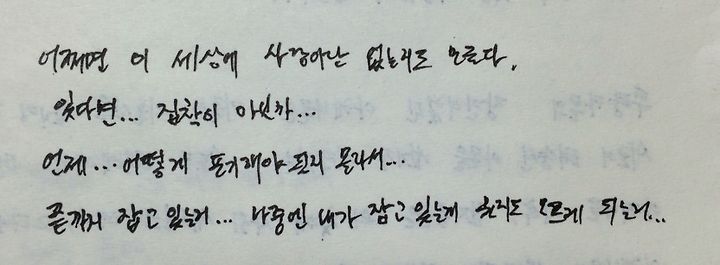 어쩌면 이 세상에 사랑이란 없는지도 모른다.
있다면... 집착이 아닐까...
언제... 어떻게 포기해야 될지 몰라서...
끝까지 잡고 있는거... 나중엔 내가 잡고 있는게 뭔지도 모르게 되는거...